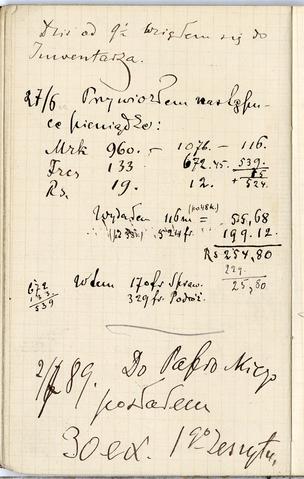 Dziś od 9½ wziąłem się do
Inwentarza.
27/6 Przywiozłem następu-
ce pieniądze:
Mrk 960. — 1076 — 116.
Frcs 133 672.45. 539.
Rs. 19. 12. + 15
524.
Wydałem 116 m (po 48k.) = 55,68
(po 38k.) 524 fr. 199.12.
Rs 254,80
229.
25,80
672
133.
539
W tem 170 fr Spraw.
329 fr. Podróż.
2/7 89. Do
posłałem
30 ex. 1go zeszytu.